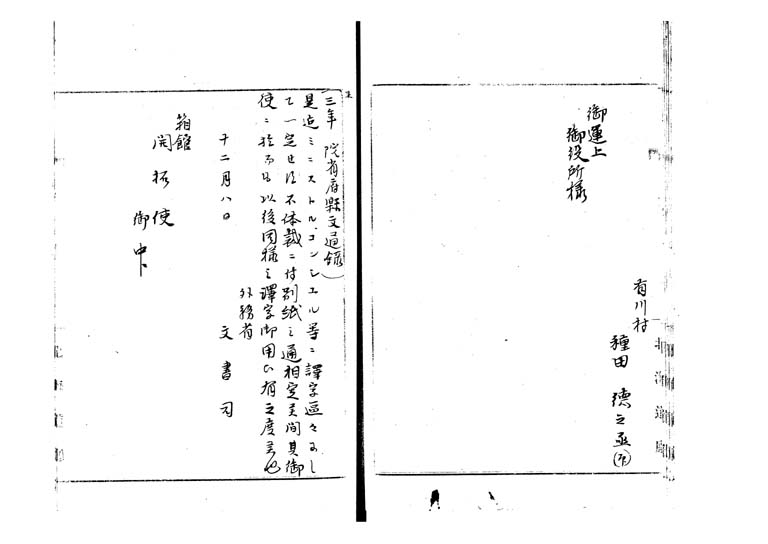 御運上
御役所様
有川村
種田徳之丞㊞
三年 院省府縣文通録)
是迄ミニストル、コンシユル等ニ譯字區々ニし
て一定せ須不体裁ニ付別紙之通相定候間其御
使ニ於而も以後同様之譯字御用ひ有之度候也
外務省
十二月八日 文書司
箱館
開拓使
御中